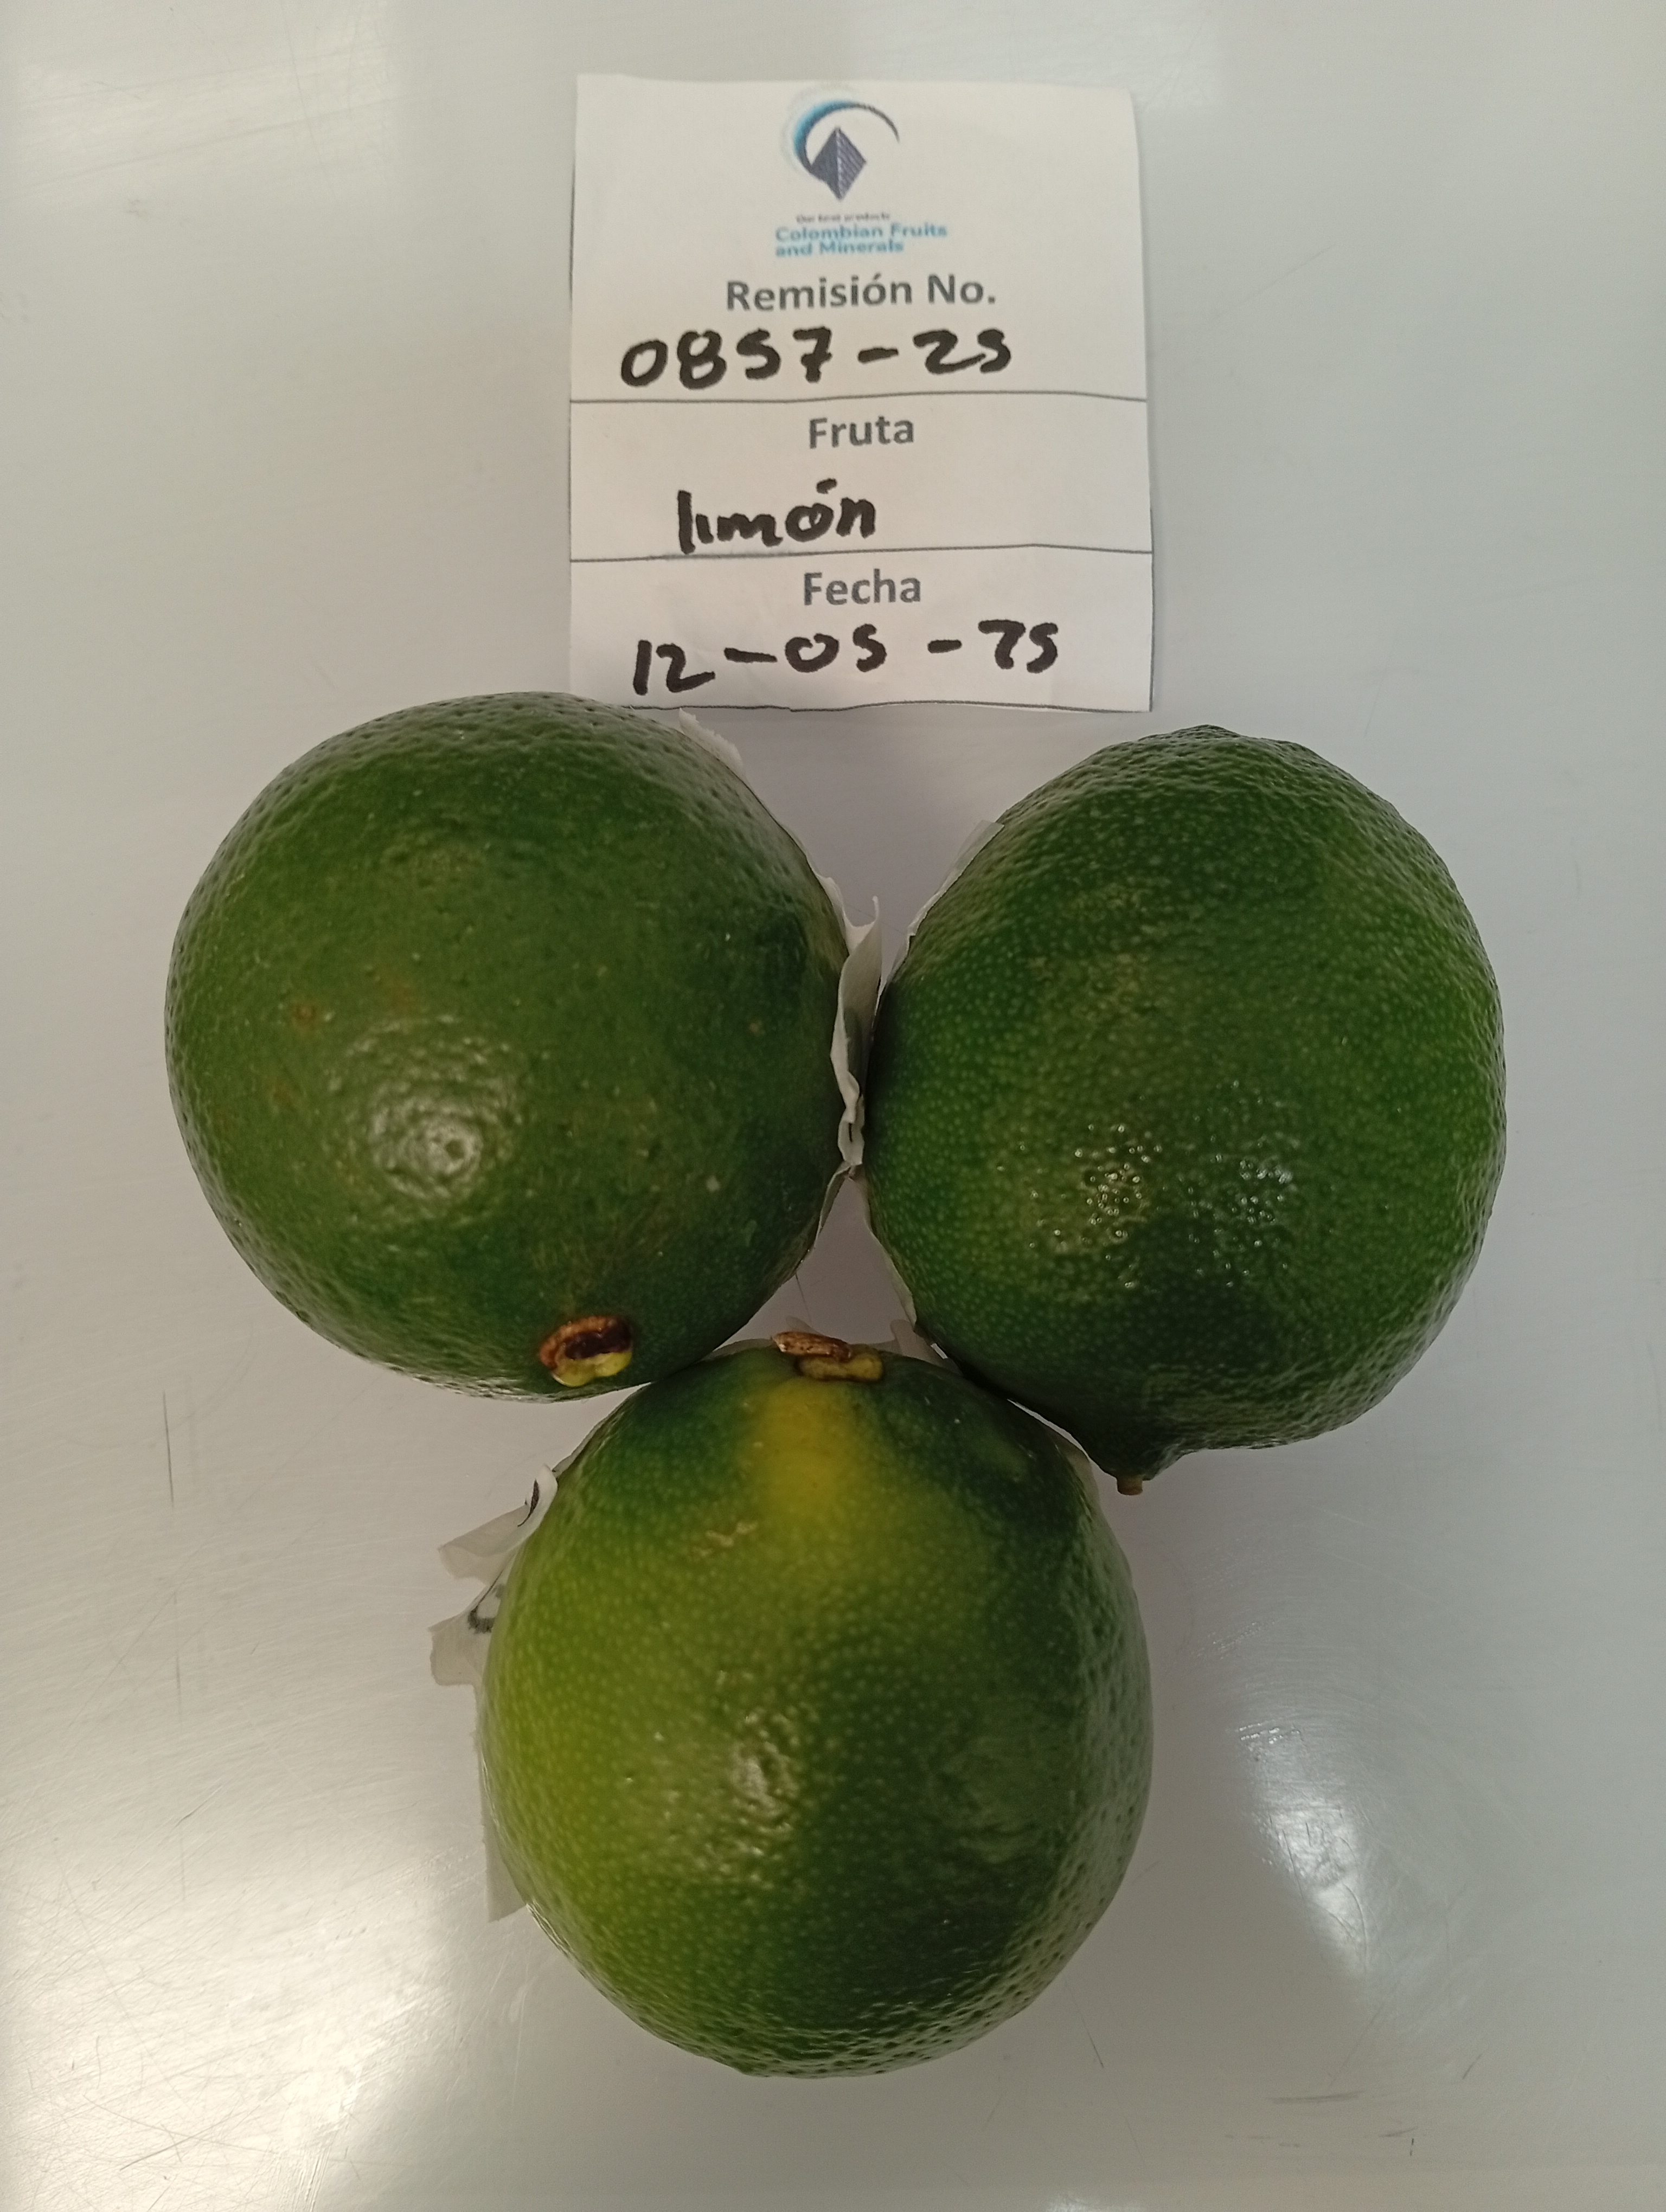 Our best products
Colombian Fruits
and Minerals
Remisión No.
0857-25
Fruta
limón
Fecha
12-05-25